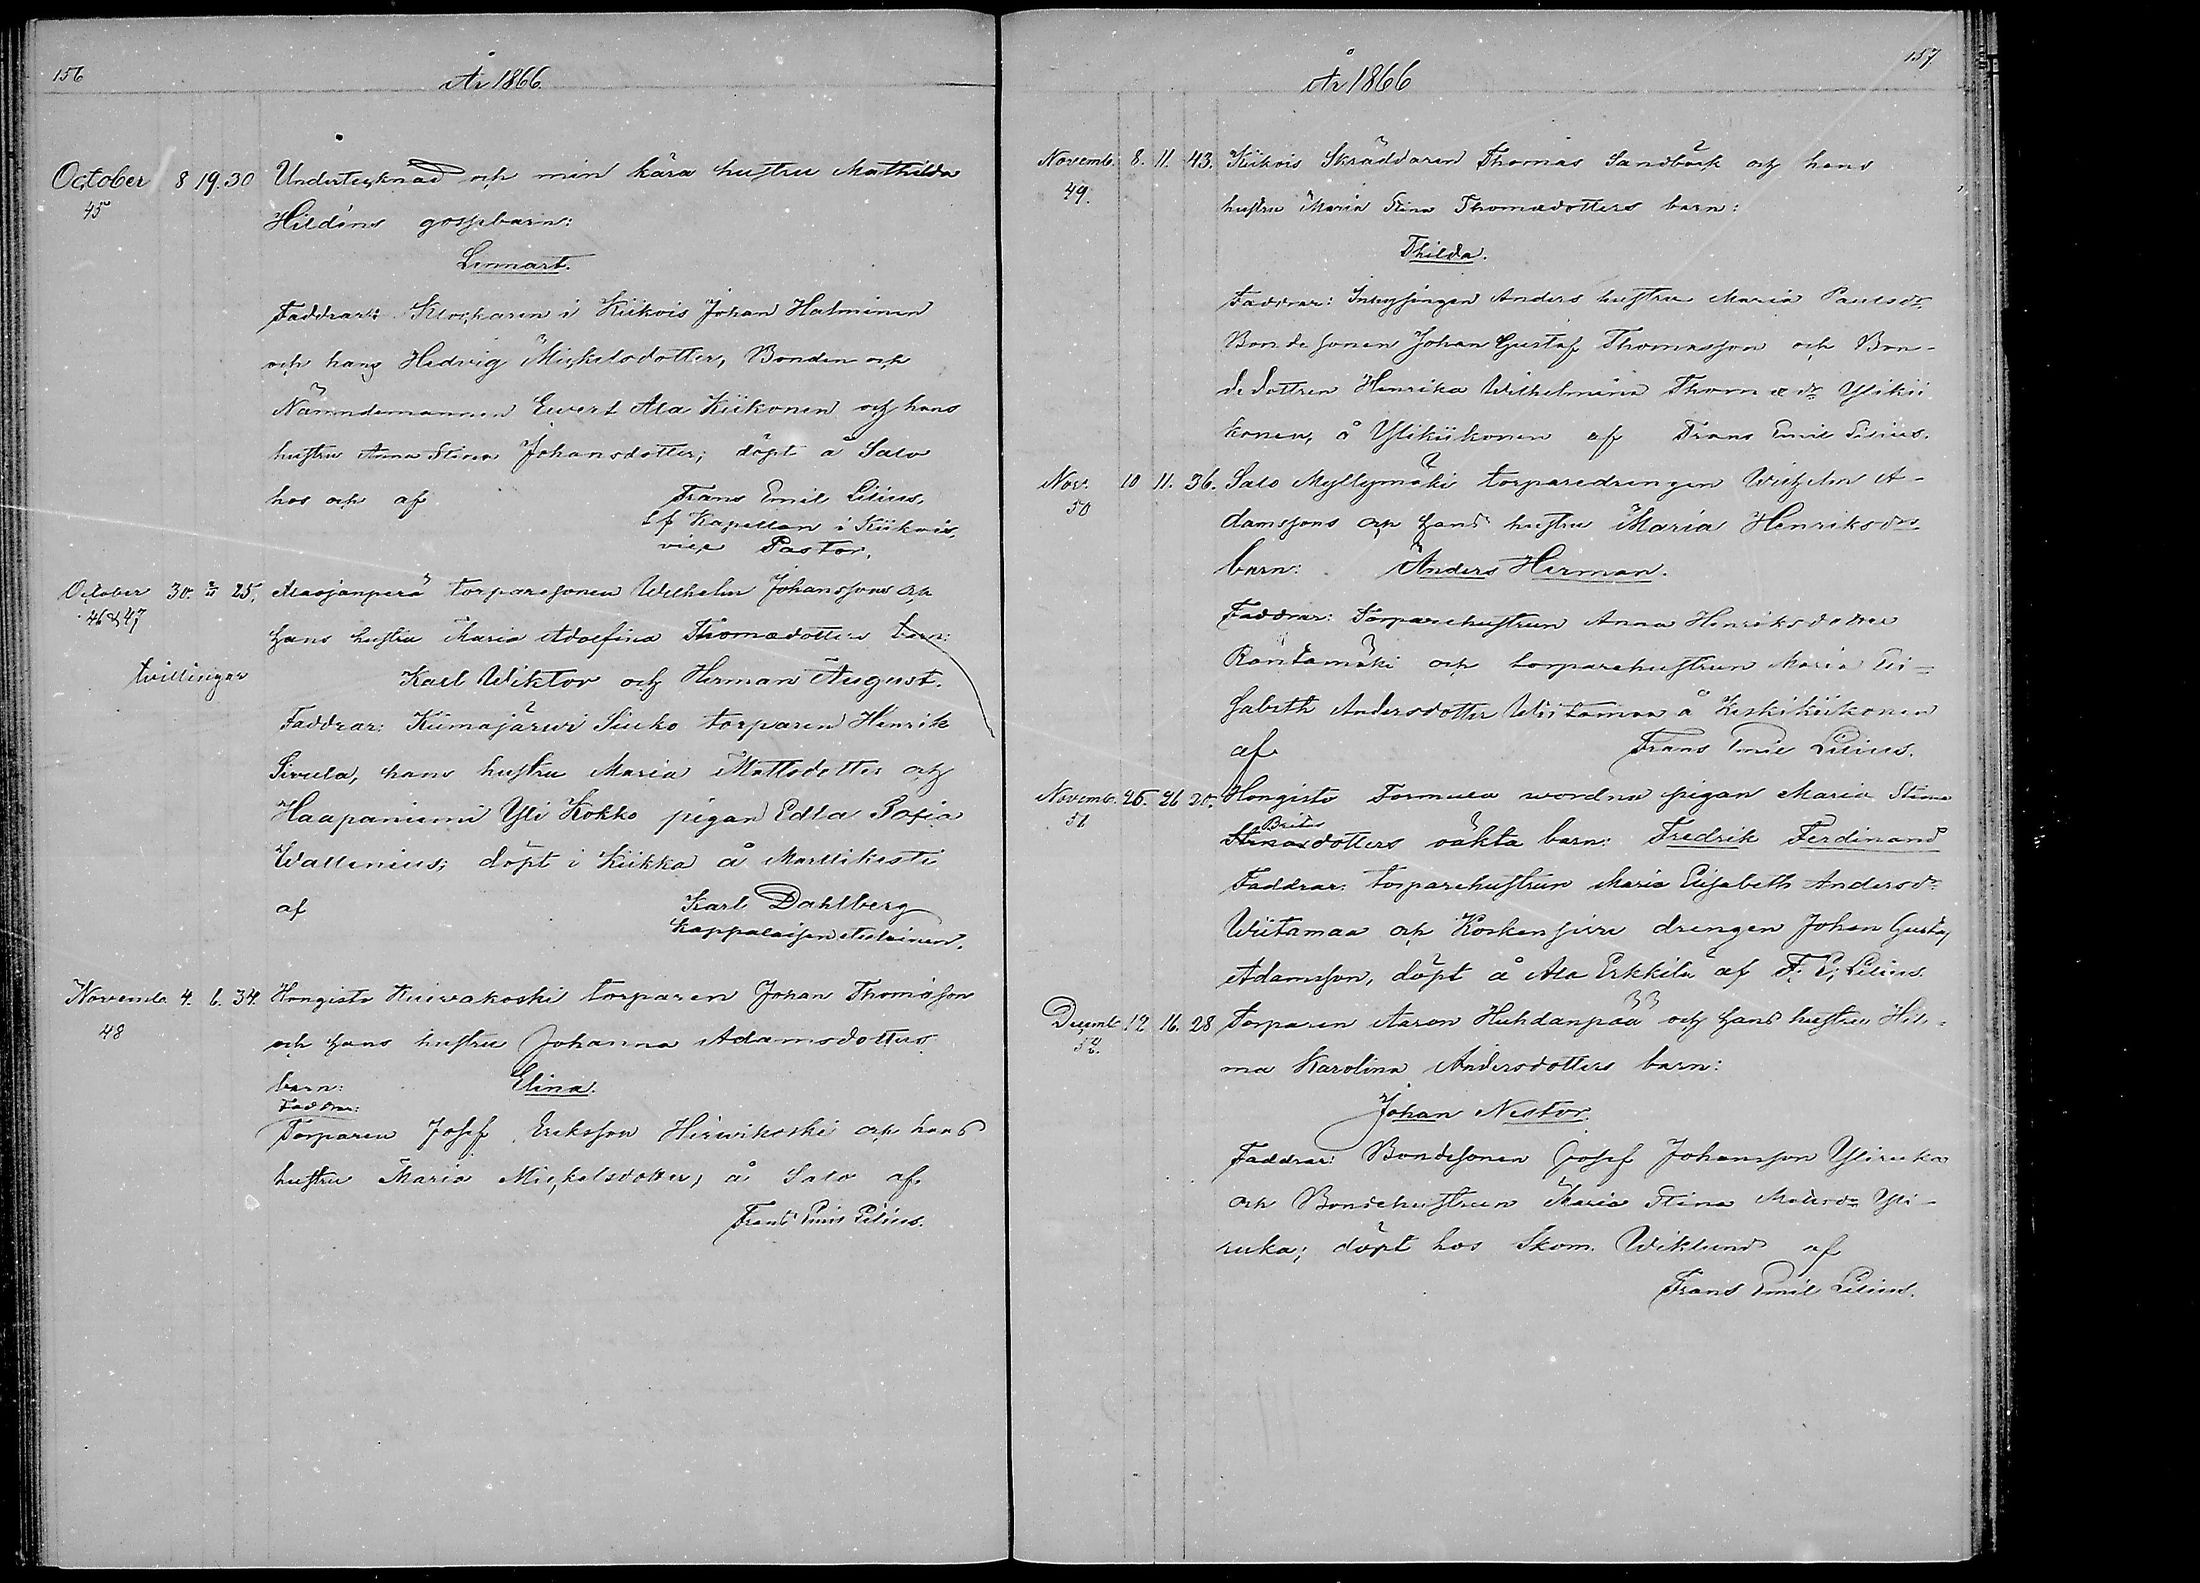 156
År 1866.
October 8 19. 30 Undertecknad och min kära hustru Mathilda
45
Hildéns gossebarn:
Lennart.
Faddrar: Klockaren i Kiikois Johan Halminen
och hans Hedvig Mickelsdotter, Bonden och
Nämndemannen Evert Ala Kiikonen och hans
hustru Anna Stina Johansdotter; döpt å Salo
hos och af Frans Emil Lilius,
Kapellan i Kiikois,
vice Pastor.
October 30. 25. torparesonen Wilhelm Johanssons och
46 & 47
hans hustru Maria Adolfina Thomædotters barn:
tvillingar Karl Wiktor och Herman August.
Faddrar: Kiimajärwi Siuko torparen Henrik
Sivula, hans hustru Maria Mattsdotter och
Haapaniemi Yli Kokko pigan Edla Sofia
Wallenius; döpt i Kiikka å Marttikesti
af Karl Dahlberg
Kappalaisen
Novemb. 4. 6. 34. Hongisto torparen Johan Thomæson
48
och hans hustru Johanna Adamsdotters
barn: Elina.
Faddrar:
Torparen Josef Eriksson Hirwikoski och hans
hustru Maria Mickelsdotter, å Salo af
Frans Emil Lilius.
157
År 1866
Novemb. 8. 11. 43. Kiikois Skräddaren Thomas Sandbäck och hans
49.
hustru Maria Stina Thomædotters barn:
Thilda.
Faddrar: Inhysingen Anders hustru Maria Paulsdr
Bondesonen Johan Gustaf Thomasson och Bon-
dedottren Henrika Wilhelmina Thomædr Ylikii
konen, å Ylikiikonen af Frans Emil Lilius.
Nov. 10 11. 36. Salo Myllymäki torparedrengen Wilhelm A-
50
damssons och hans hustru Maria Henriksdrs
barn: Anders Herman.
Faddrar: Torparehustrun Anna Henriksdotter
Rantamäki och torparehustrun Maria Eli-
sabeth Andersdotter Wiitamaa å Keskikiikonen
af Frans Emil Lilius.
Novemb. 25. 26 20. Hongisto Formula wordna pigan Maria Stina
51
Brites
Stinasdotters oäkta barn: Fredrik Ferdinand
Faddrar: torparehustrun Maria Elisabeth Andersdr
Wiitamaa och drengen Johan Gustaf
Adamsson, döpt å Ala Erkkilä af F. E. Lilius.
Decemb. 12 16. 28 Torparen Aaron Huhdanpää och hans hustru Hil-
52.
ma Karolina Andersdotters barn:
Johan Nestor.
Faddrar: Bondesonen Josef Johansson Yliruka
och Bondehustrun Maria Stina Yli-
ruka; döpt hos Skom. Wiklund af
Frans Emil Lilius.